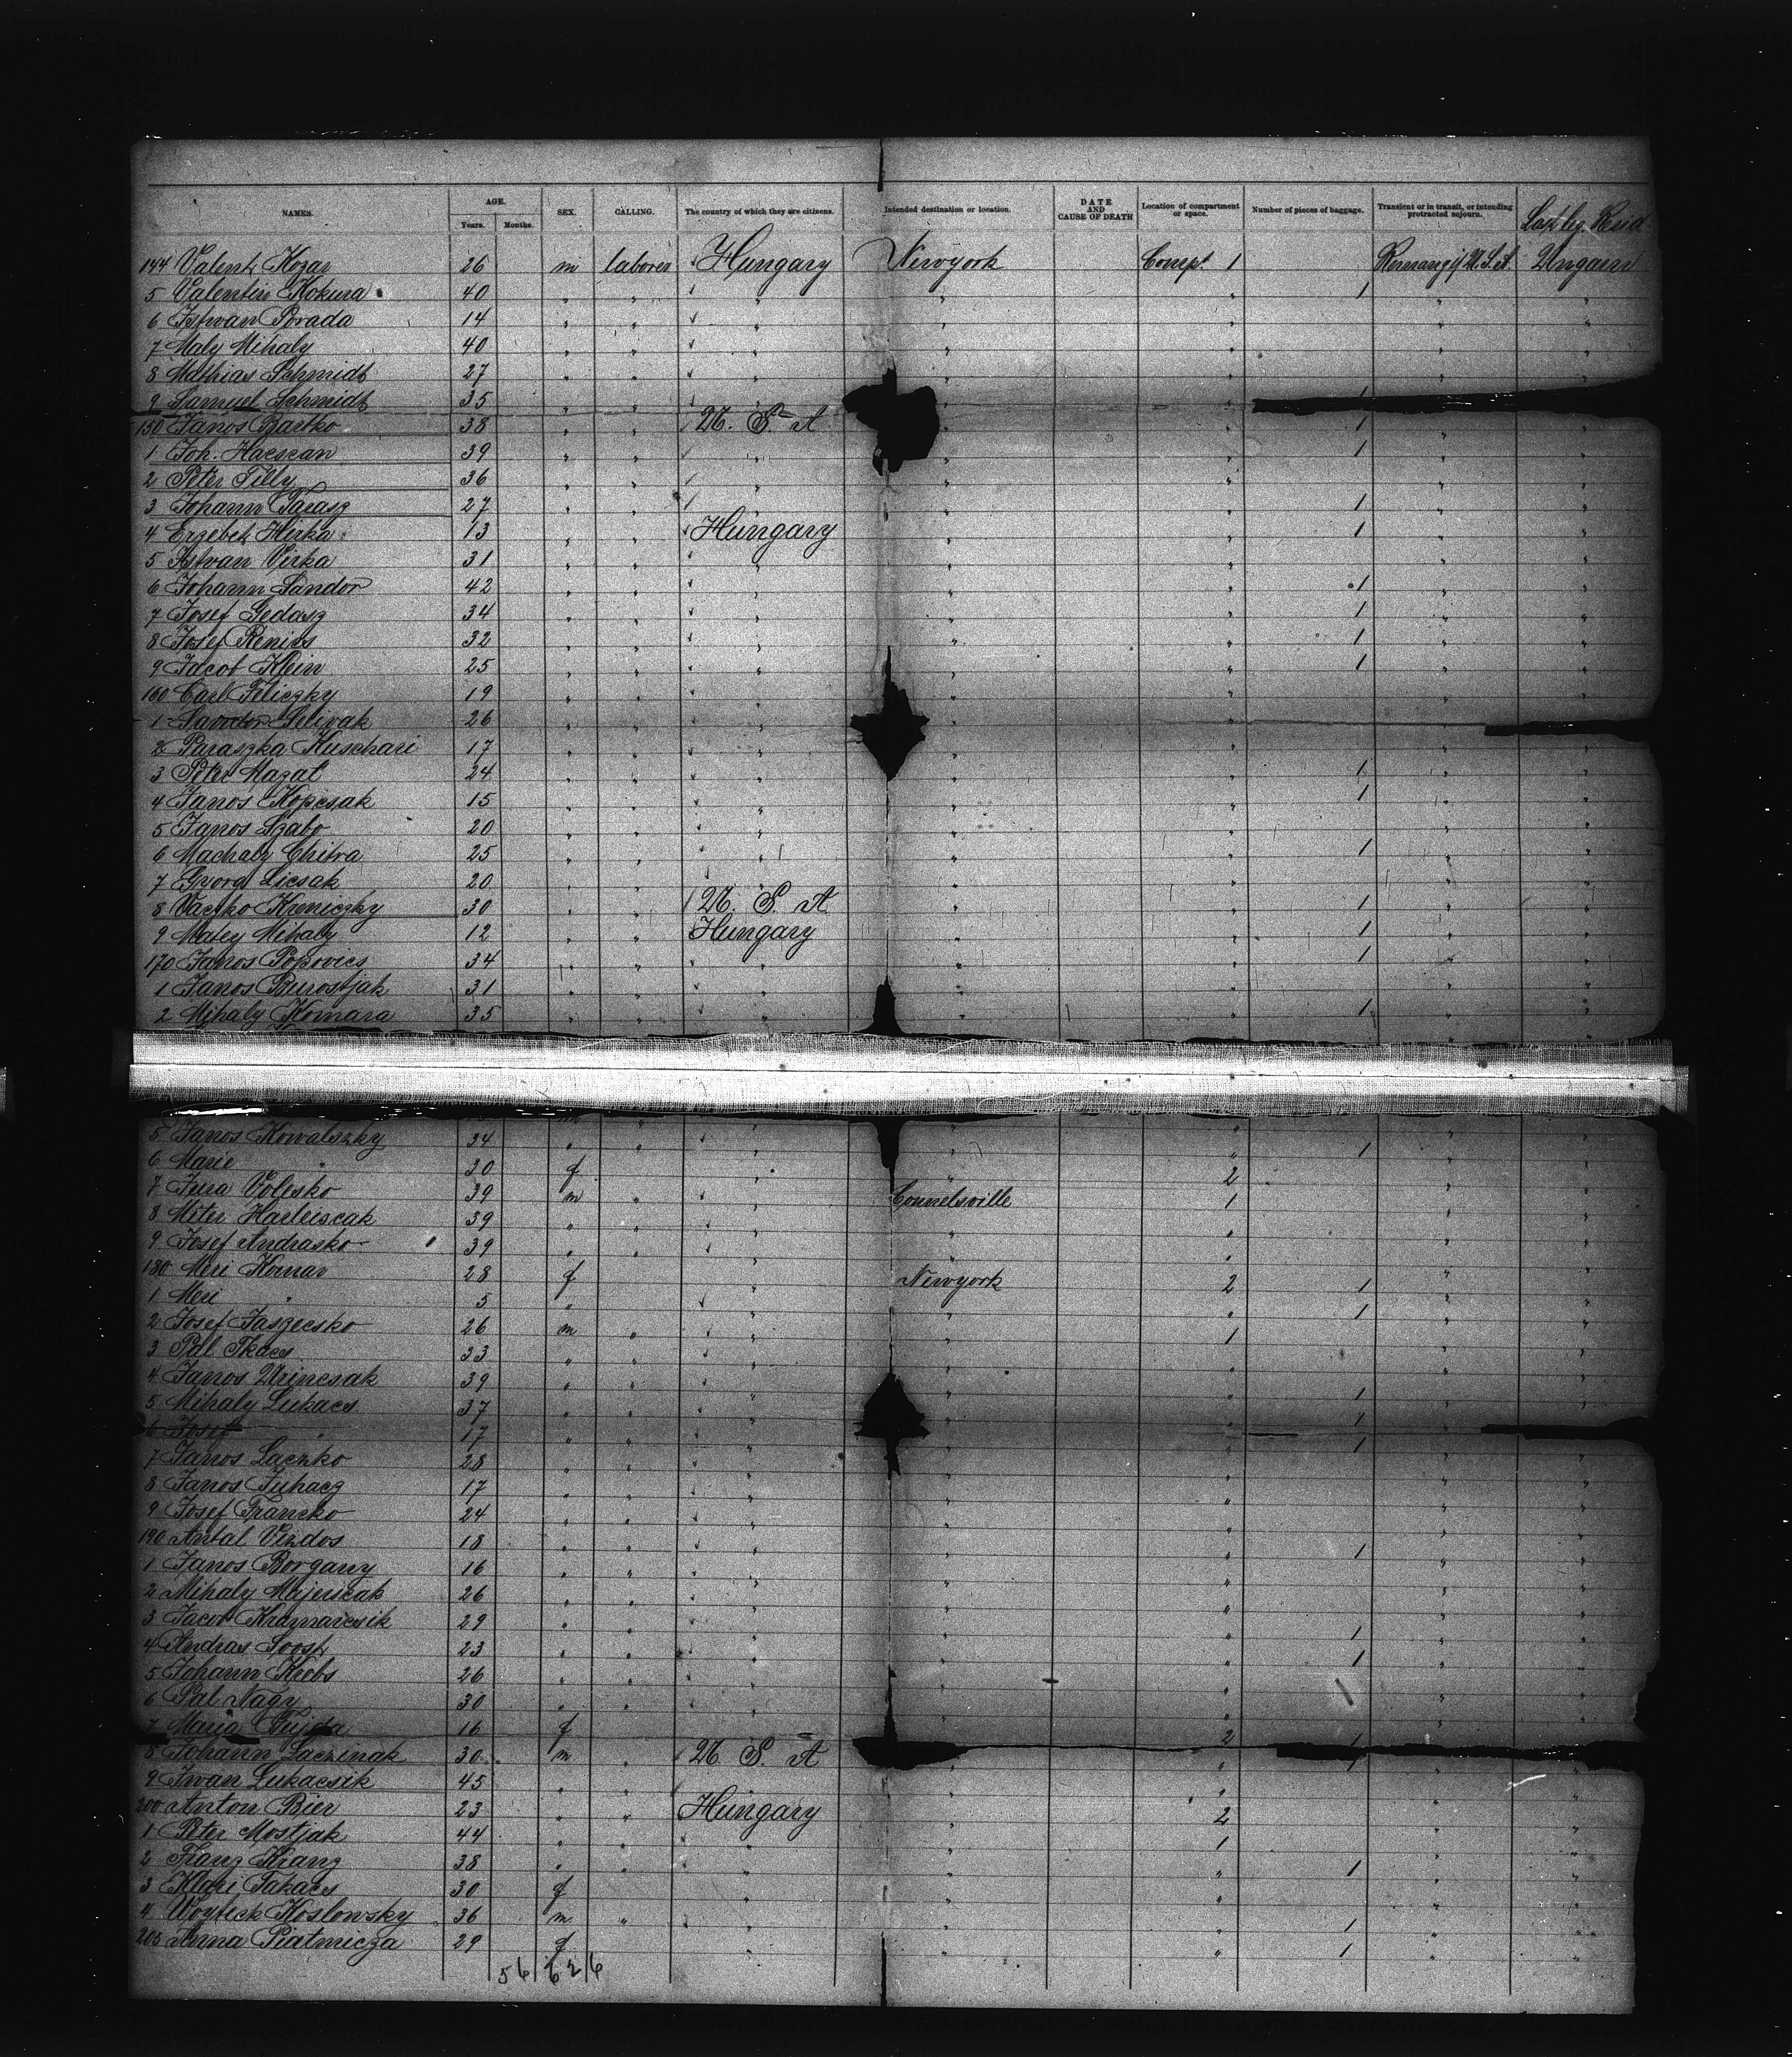 NAMES. AGE. Years. Months. SEX. CALLING. The country of which they are citizens. Intended destination or location. DATE AND CAUSE OF DEATH Location of compartment or space. Number of pieces of baggage. Transient or in transit, or intending protracted sojourn.
144 Valent Kozar 26 m laborer Hungary Newyork Compt. 1 Ungarn
5 Valentin Kokura 40 " " " " " 1 " "
6 Istwan Porada 14 " " " " " " "
7 Maly Mihaly 40 " " " " " " "
8 Mathias Schmidt 27 " " " " " " "
9 Samuel Schmidt 35 " " " " 1 " "
150 Janos Bartko 38 " " U. S. A " 1 " "
1 Joh. Hacscan 39 " " " " " 1 " "
2 Peter Tilly 36 " " " " " " "
3 Johann Tarasz 27 " " " " " 1 " "
4 Erzebet Hirka 13 " " Hungary " " 1 " "
5 Istvan Virka 31 " " " " " " "
6 Johann Sandor 42 " " " " " 1 " "
7 Josef Gedasz 34 " " " " " 1 " "
8 Josef Renies 32 " " " " " 1 " "
9 Jacob Klein 25 " " " " " 1 " "
160 Carl Feliczky 19 " " " " " " "
1 Sandor Selivak 26 " " " " " " "
2 Paraszka Kuschari 17 " " " " " " "
3 Peter Mazat 24 " " " " " 1 " "
4 Janos Kopcsak 15 " " " " " 1 " "
5 Janos Szabo 20 " " " " " " "
6 Chitra 25 " " " " " 1 " "
7 Györg Licsak 20 " " " " " " "
8 Vaczko Kreniczky 30 " " U. S. A " " 1 " "
9 Matey Mihaly 12 " " Hungary " " 1 " "
170 Janos Popovics 34 " " " " " 1 " "
1 Janos Burostjak 31 " " " " " " "
2 Mihaly Komara 35 " " " " " 1 " "
5 Janos Kowalszky 34 " " " " " 1 " "
6 Marie " 30 f " " 2 " "
7 Jura Volesko 39 m " " Connelsville 1 " "
8 Miter Harleiscak 39 " " " " " " "
9 Josef Andrasko 39 " " " " " " "
180 Meri Komar 28 f " Newyork 2 1 " "
1 Meri " 5 " " " " 1 " "
2 Josef Jaszecsko 26 m " " " 1 " "
3 Pal Tkacs 33 " " " " " " "
4 Janos Urincsak 39 " " " " " 1 " "
5 Mihaly Lukacs 37 " " " " " 1 " "
6 Josef " 17 " " " " " 1 " "
7 Janos Laczko 28 " " " " " " "
8 Janos Juhacz 17 " " " " " " "
9 Josef Francko 24 " " " " " " "
190 Antal Virdos 18 " " " " " 1 " "
1 Janos Borgany 16 " " " " " " "
2 Mihaly Majuscak 26 " " " " " " "
3 Jacob Kramarcsik 29 " " " " " 1 " "
4 Andras Soosh 23 " " " " " 1 " "
5 Johann Krebs 26 " " " " " " "
6 Pal Nagy 30 " " " " " " "
7 Maria Gujda 16 f " " 2 1 " "
8 Johann Laczinak 30 m " U. S. A " " 1 " "
9 Iwan Lukacsik 45 " " " " " "
200 Anton Bier 23 " " Hungary " 2 " "
1 Peter Mostjak 44 " " " " 1 " "
2 Franz Kranz 38 " " " " " 1 " "
3 Klari Takacs 30 f " " " " "
4 Woyteck Koslowsky 36 m " " " " 1 " "
205 Anna Piatnicza 29 f " " " 1 " "
56 626